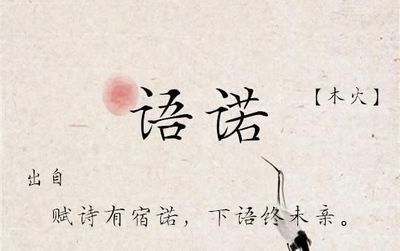 语诺
【木火】
出自
赋诗有宿诺，下语终未亲。